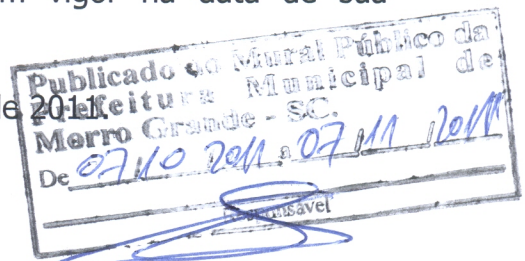 vigor na data de sua
de 2011.
Publicado no Mural Público da
Prefeitura Municipal de
Morro Grande - SC.
De 07/10 2011 a 07/11/2011
Responsável